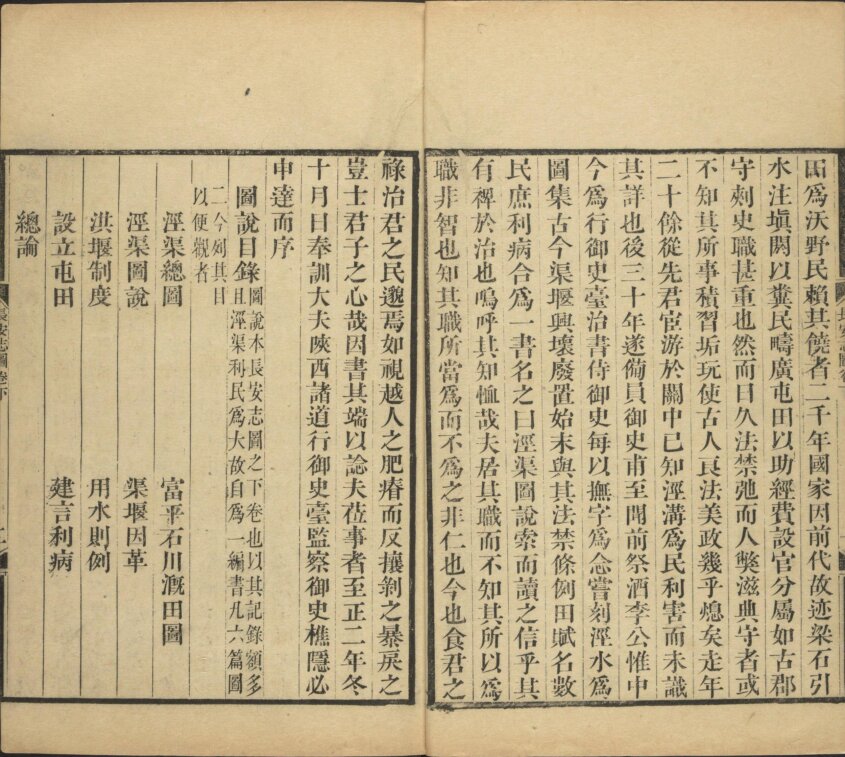 為沃野民賴其饒者二千年國家因前代故迹梁石引
水注填閼以糞民疇廣屯田以助經費設官分屬如古郡
守刺史職甚重也然而日久法禁弛而人獘滋典守者或
不知其所事積習垢玩使古人良法美政幾乎熄矣走年
二十餘從先君宦游於關中已知涇溝為民利害而未識
其詳也後三十年遂備員御史甫至聞前祭酒李公惟中
今為行御史臺治書侍御史每以撫字為念嘗刻涇水為
圖集古今渠堰興壞廢置始末與其法禁條例田賦名數
民庶利病合為一書名之曰涇渠圖說索而讀之信乎其
有裨於治也嗚呼其知恤哉夫居其職而不知其所以為
職非智也知其職所當為而不為之非仁也今也食君之
祿治君之民邈焉如視越人之肥瘠而反攘剝之暴戾之
豈士君子之心哉因書其端以諗夫莅事者至正二年冬
十月日奉訓大夫陝西諸道行御史臺監察御史樵隱必
申達而序
圖說目錄圖說本長安志圖之下卷也以其記錄額多
且涇渠利民為大故自為一編書凡六篇圖
二今列其目
以便觀者
涇渠總圖 富平石川溉田圖
涇渠圖說 渠堰因革
洪堰制度 用水則例
設立屯田 建言利病
總論
長安志圖卷下